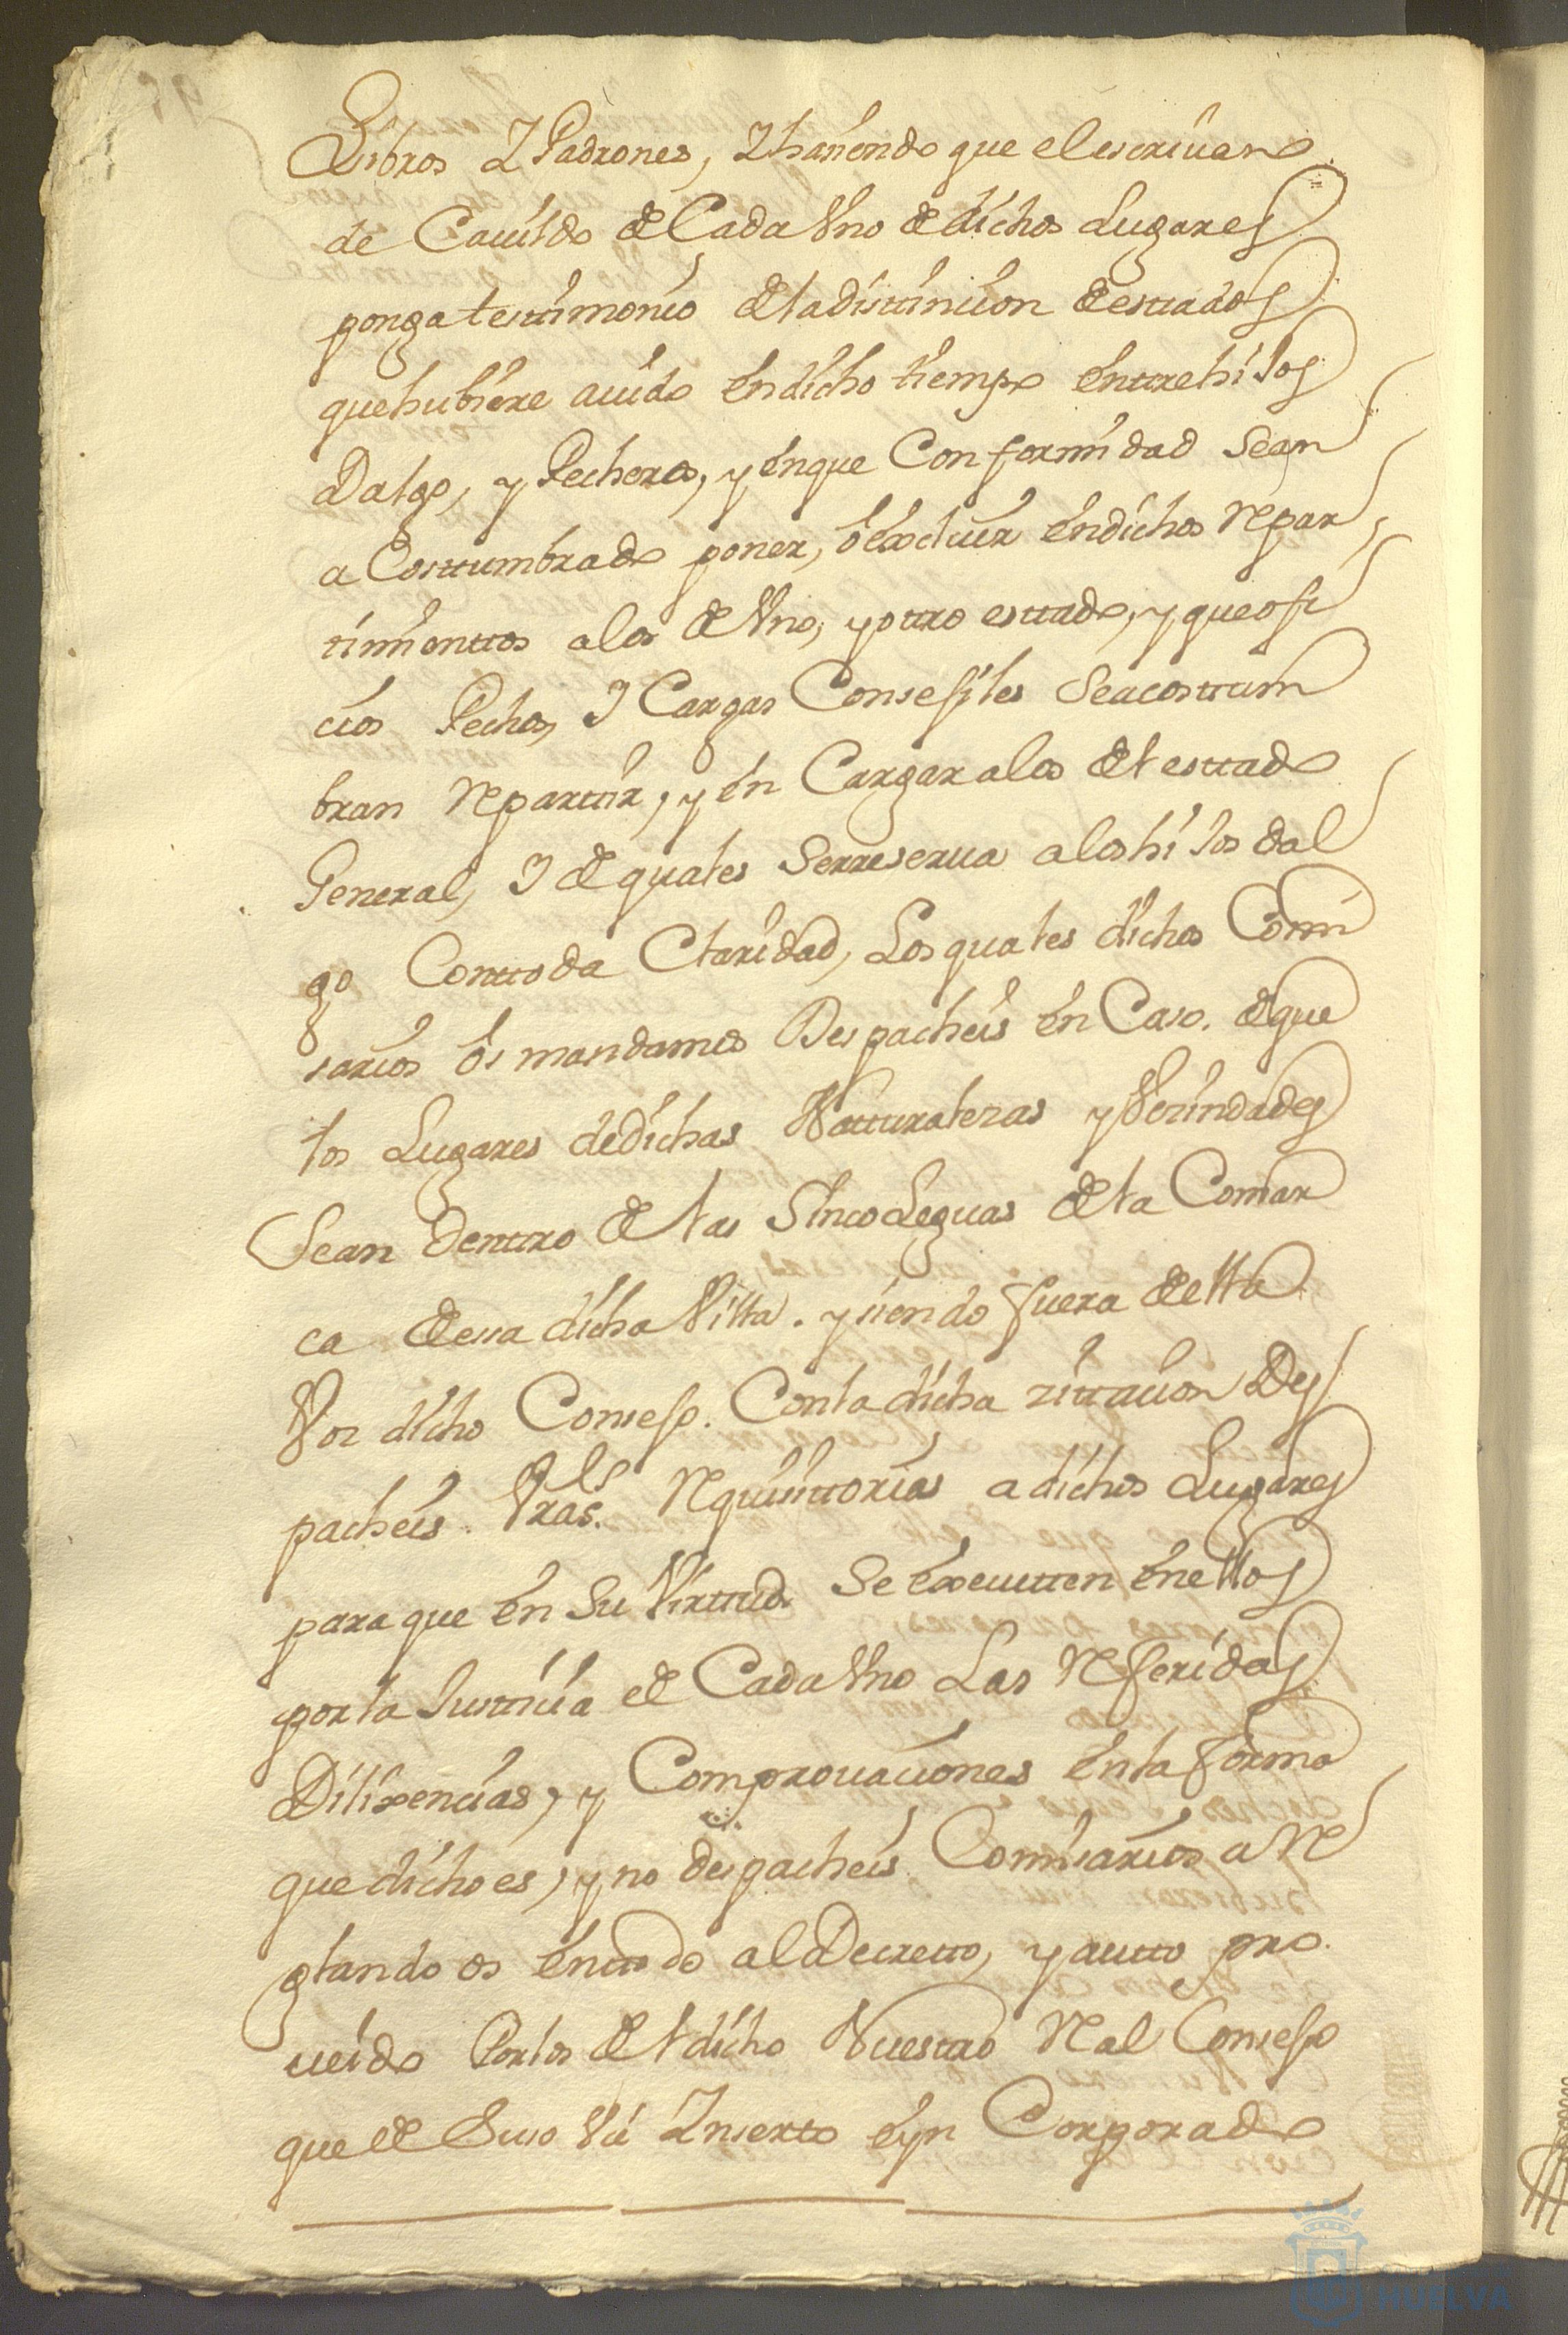 Libros I Padrones, I haciendo que el escriuano
de Cauildo de Cada Vno de dichos Lugares
ponga testimonio de la distincion de estados
que hubiere auido en dicho tiempo enttre hijos
Dalgo, y Pecheros, y en que Conformidad sean
a Costtumbrado poner, o excluir en dichos repar
timientos a los de Vno, y otro esttado, y que ofi
cios Pechos, I Cargas Consejiles se acosttum
bran repartir, y en Cargar a los del esttado
General, I de quales se rreserua a los hijos dal
go Con ttoda Claridad, Los quales dichos Comi
sarios os mandamos Despacheis en Caso. de que
los Lugares de dichas Natturalezas y Vezindades
Sean Denttro de las Sinco Leguas de la Comar
ca de essa dicha Villa. y siendo fuera della
Vos dicho Consejo. Con la dicha zittacion Des
pacheis. Vras. requisittorias a dichos Lugares
para que en su Virttud se executten en ellos
por la Justicia de Cada Vno Las referidas
Dilixencias, y Comprouaciones en la forma
que dicho es, y no despacheis Comisarios a rre
glando os en ttodo al Decretto, y autto pro.
ueido Por los del dicho Nuestro Real Consejo
que de Suso Va Inserto e yn Corporado
HUELVA